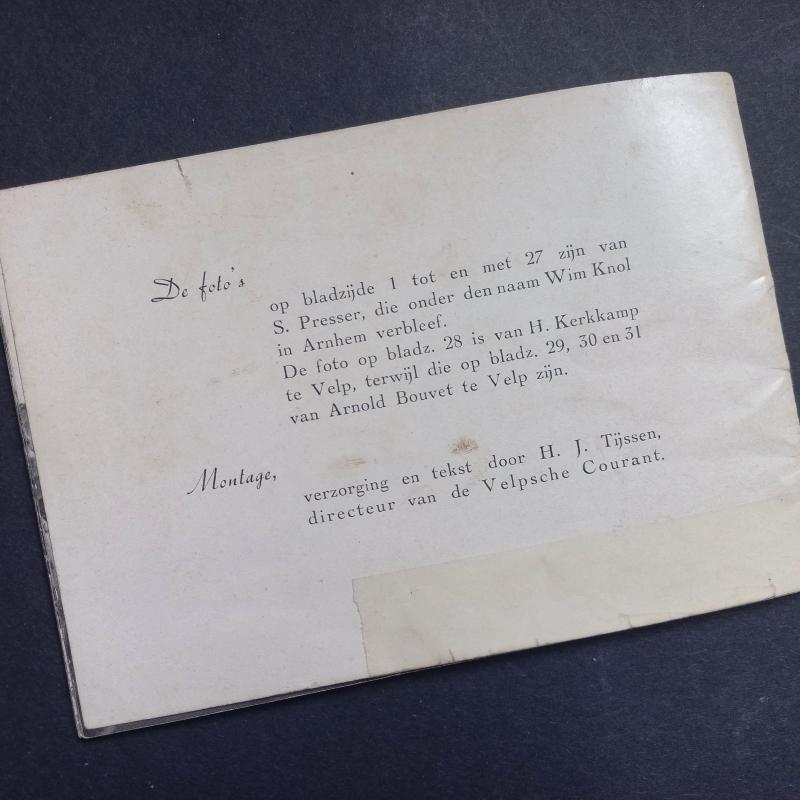 De foto's
op bladzijde 1 tot en met 27 zijn van
S. Presser, die onder den naam Wim Knol
in Arnhem verbleef.
De foto op bladz. 28 is van H. Kerkkamp
te Velp, terwijl die op bladz. 29, 30 en 31
van Arnold Bouvet te Velp zijn.
Montage,
verzorging en tekst door H. J. Tijssen,
directeur van de Velpsche Courant.